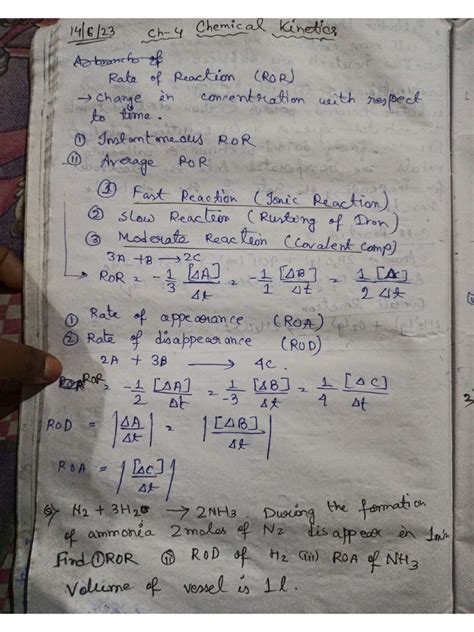 14/6/23 Ch-4 Chemical Kinetics
As branch of
Rate of Reaction (ROR)
→ Change in concentration with respect
to time.
① Instantaneous ROR
⑪ Average ROR
① Fast Reaction (Ionic Reaction)
② Slow Reaction (Rusting of Iron)
③ Moderate Reaction (Covalent comp)
3A + B → 2C
ROR = -1/3 [ΔA]/Δt = -1/1 [ΔB]/Δt = 1/2 [Δ]/Δt
① Rate of appearance (ROA)
② Rate of disappearance (ROD)
2A + 3B → 4C.
ROR = -1/2 [ΔA]/Δt = 1/-3 [ΔB]/Δt = 1/4 [ΔC]/Δt
ROD = |ΔA/Δt| = |[ΔB]/Δt|
ROA = |[ΔC]/Δt|
Q) N2 + 3H2 → 2NH3. During the formation
of ammonia 2 moles of N2 disappear in 1
Find ① ROR ⑪ ROD of H2 (iii) ROA of NH3
Volume of vessel is 1l.